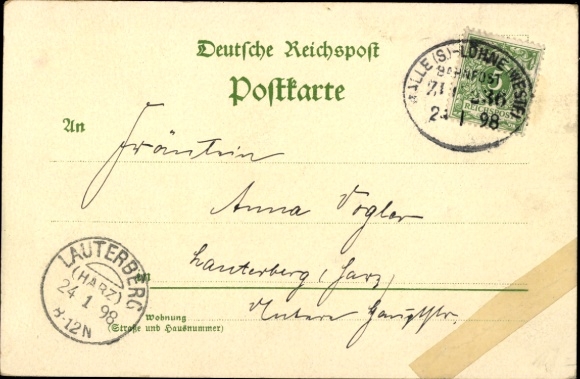 Deutsche Reichspost
Postkarte
HALLE (S)-LÖHNE WESTF
BAHNPOST
ZUG 236
24 1 98
REICHSPOST
An
Fräulein
Anna Vogler
in
Lauterberg (Harz)
Untere Hauptstr.
Wohnung
(Straße und Hausnummer)
LAUTERBERG
(HARZ)
24 1 98
8-12N